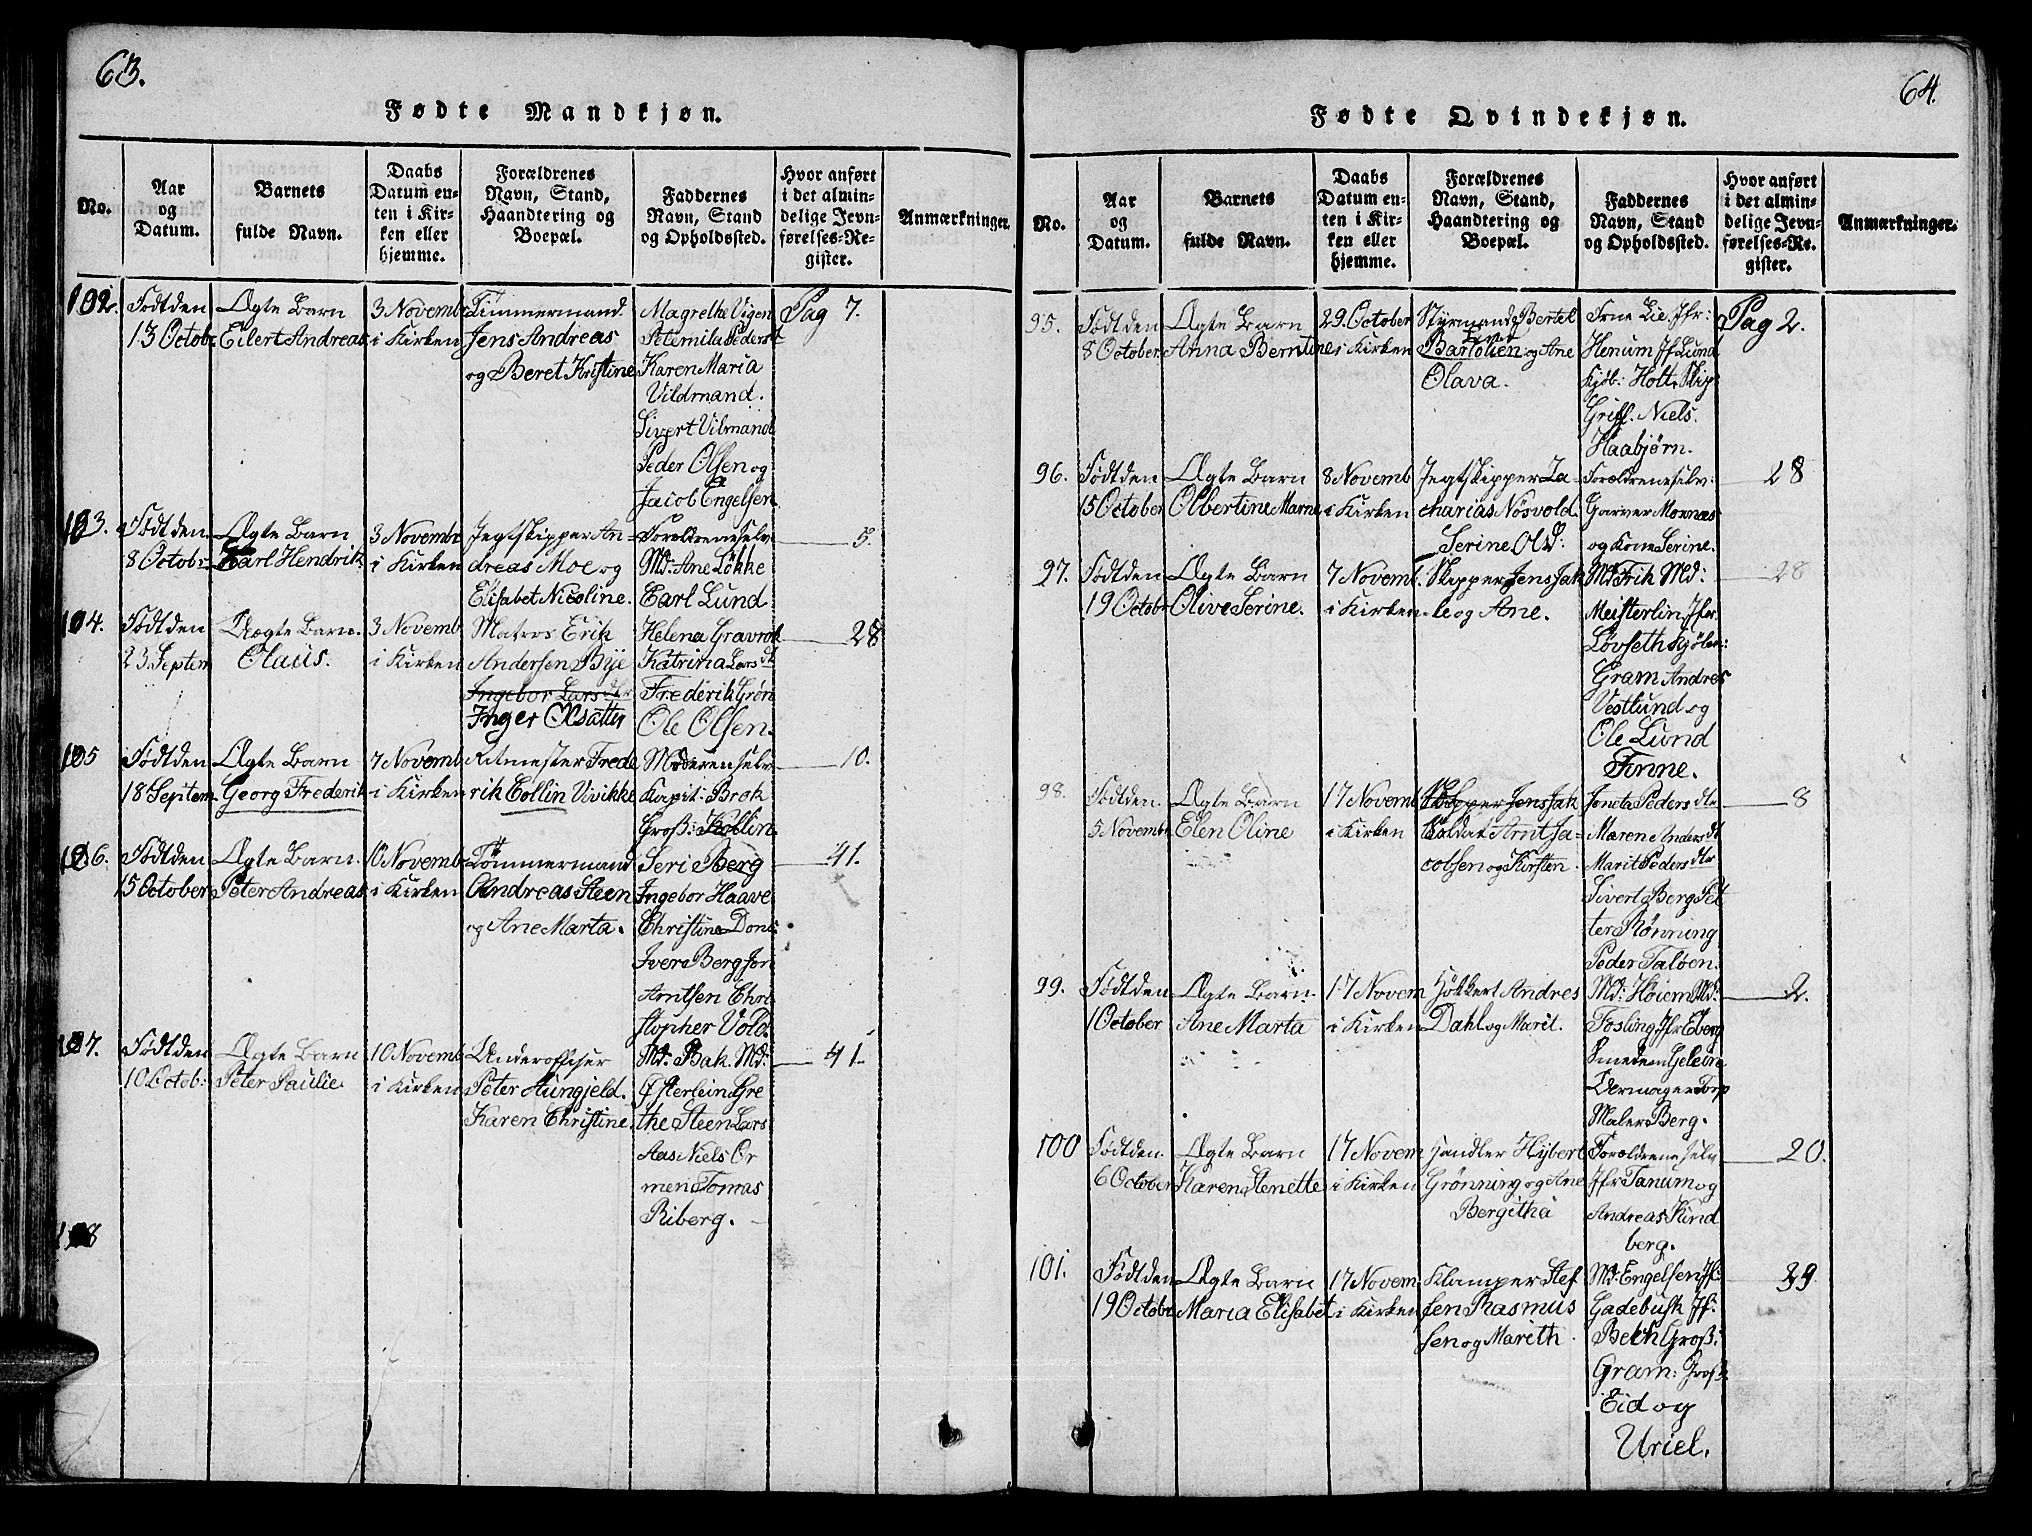 63.
Fødte Mandkjøn.
No.
Aar
og
Datum.
Barnets
fulde Navn.
Daabs
Datum en-
ten i Kir-
ken eller
hjemme.
Forældrenes
Navn, Stand,
Haandtering og
Boepæl.
Faddernes
Navn, Stand
og Opholdssted.
Hvor anført
i det almin-
delige Jevn-
førelses-Re-
gister.
Anmærkninger.
102.
Født den
13 Octobr
Ægte Barn
Eilert Andreas
3 Novembr
i Kirken
Timmermand
Jens Andreas
og Beret Kristine
Magrethe Vigen
Peternila Peders dt
Karen Maria
Vildmand.
Sivert Vilmand
Peder Olsen og
Jacob Engelsen
Pag 7.
103.
Født den
8 Octobr
Ægte Barn
Carl Hendrik
3 Novembr
i Kirken
Jegtskipper An-
dreas Moe og
Elisabet Nicoline.
Forældrene selv
Md: Ane Løkke
Carl Lund
3.
104.
Født den
23 Septem
Uægte Barn.
Olaus.
3 Novemb
i Kirken
Matros Erik
Andersen Bye
Ingebor Lars dtr
Inger Olsatter
Helena Gravrok
Katrina Lars dt
Frederik Grøn
Ole Olsen.
28
105
Født den
18 Septem
Ægte Barn
Georg Frederik
7 Novemb
i Kirken
Ritmester Frede
rik Collin Vivikke
Moderen selv
Kapit: Brok
Groß: Kollin
10.
106.
Født den
15 October
Ægte Barn.
Peter Andreas
10 Novemb
i Kirken
Tømmermand
Andreas Steen
og Ane Marta.
Seri Berg
Ingebor Haave
Christine Dons
Iver Berg Jon
Arntsen Chri
stopher Vold.
41.
107.
Født den
10 Octob:
Ægte Barn
Peter Paulie
10 Novemb
i Kirken
Underoffiser
Peter Hungjeld.
Karen Christine
Md: Bak. Md:
Østerlein Gre
the Steen Lars
Aas Niels Or
men Tomas
Riberg.
41.
108
64.
Fødte Qvindekjøn.
No.
Aar
og
Datum.
Barnets
fulde Navn.
Daabs
Datum en-
ten i Kir-
ken eller
hjemme.
Forældrenes
Navn, Stand,
Haandtering og
Boepæl.
Faddernes
Navn, Stand
og Opholdssted.
Hvor anført
i det almin-
delige Jevn-
førelses-Re-
gister.
Anmærkninger.
95.
Født den
8 October
Ægte Barn
Anna Berntine
29 October
i Kirken
Styrmand Bertel
Bartolien og Ane
Olava.
Frne Lie. Jfr:
Henum Jf Lund
Kjøb: Holt, Skip
Griff. Niels.
Haabjørn.
Pag 2.
96.
Født den
15 October
Ægte Barn
Olbertine Marne
8 Novemb
i Kirken
Jegtskipper Za
charias Nøsvold
Serine Old:
Forældrene selv:
Garver Mornæs
og Kone Serine.
28
97.
Født den
19 Octobr
Ægte Barn
Olive Serine.
7 Novemb.
i Kirken
Skipper Jens Jak
le og Ane.
Md Frik Md:
Meisterlin, Jfr
Løvseth Kjølen:
Gram Andres
Vestlund og
Ole Lund
Finne.
28
98.
Født den.
5 Novembr
Ægte Barn
Elen Oline
17 Novemb
i Kirken
Skipper Jens Jak
Soldat Arnt Ja-
cobsen og Kirsten
Joneta Peders dtr
Maren Anders dt
Marit Peders dtr
Sivert Berg Pet
ter Rønning
Peder Taløen.
8
99.
Født den
1 October
Ægte Barn.
Ane Marta
17 Novem
i Kirken
Høkkert Andres
Dahl og Marit.
Md: Høiem Md:
Fosling Jfr Eberg
Smeden Geleire
Uermager Torp
Maler Berg.
2.
100
Født den.
6 October
Ægte Barn
Karen Stenette
17 Novem
i Kirken
Handler Hybert
Grønning og Ane
Bergitha
Forældrene selv
Jfr Tanum og
Andreas Kind
berg.
20.
101.
Født den
19 Octobr
Ægte Barn
Maria Elisabet
17 Novem
i Kirken
Klamper Stef
fen Rasmus
sen og Mareth
Md: Engelsen Jf:
Gadebusk Jf:
Beck Groß:
Gram: Groß:
Eid og
Uriel.
29